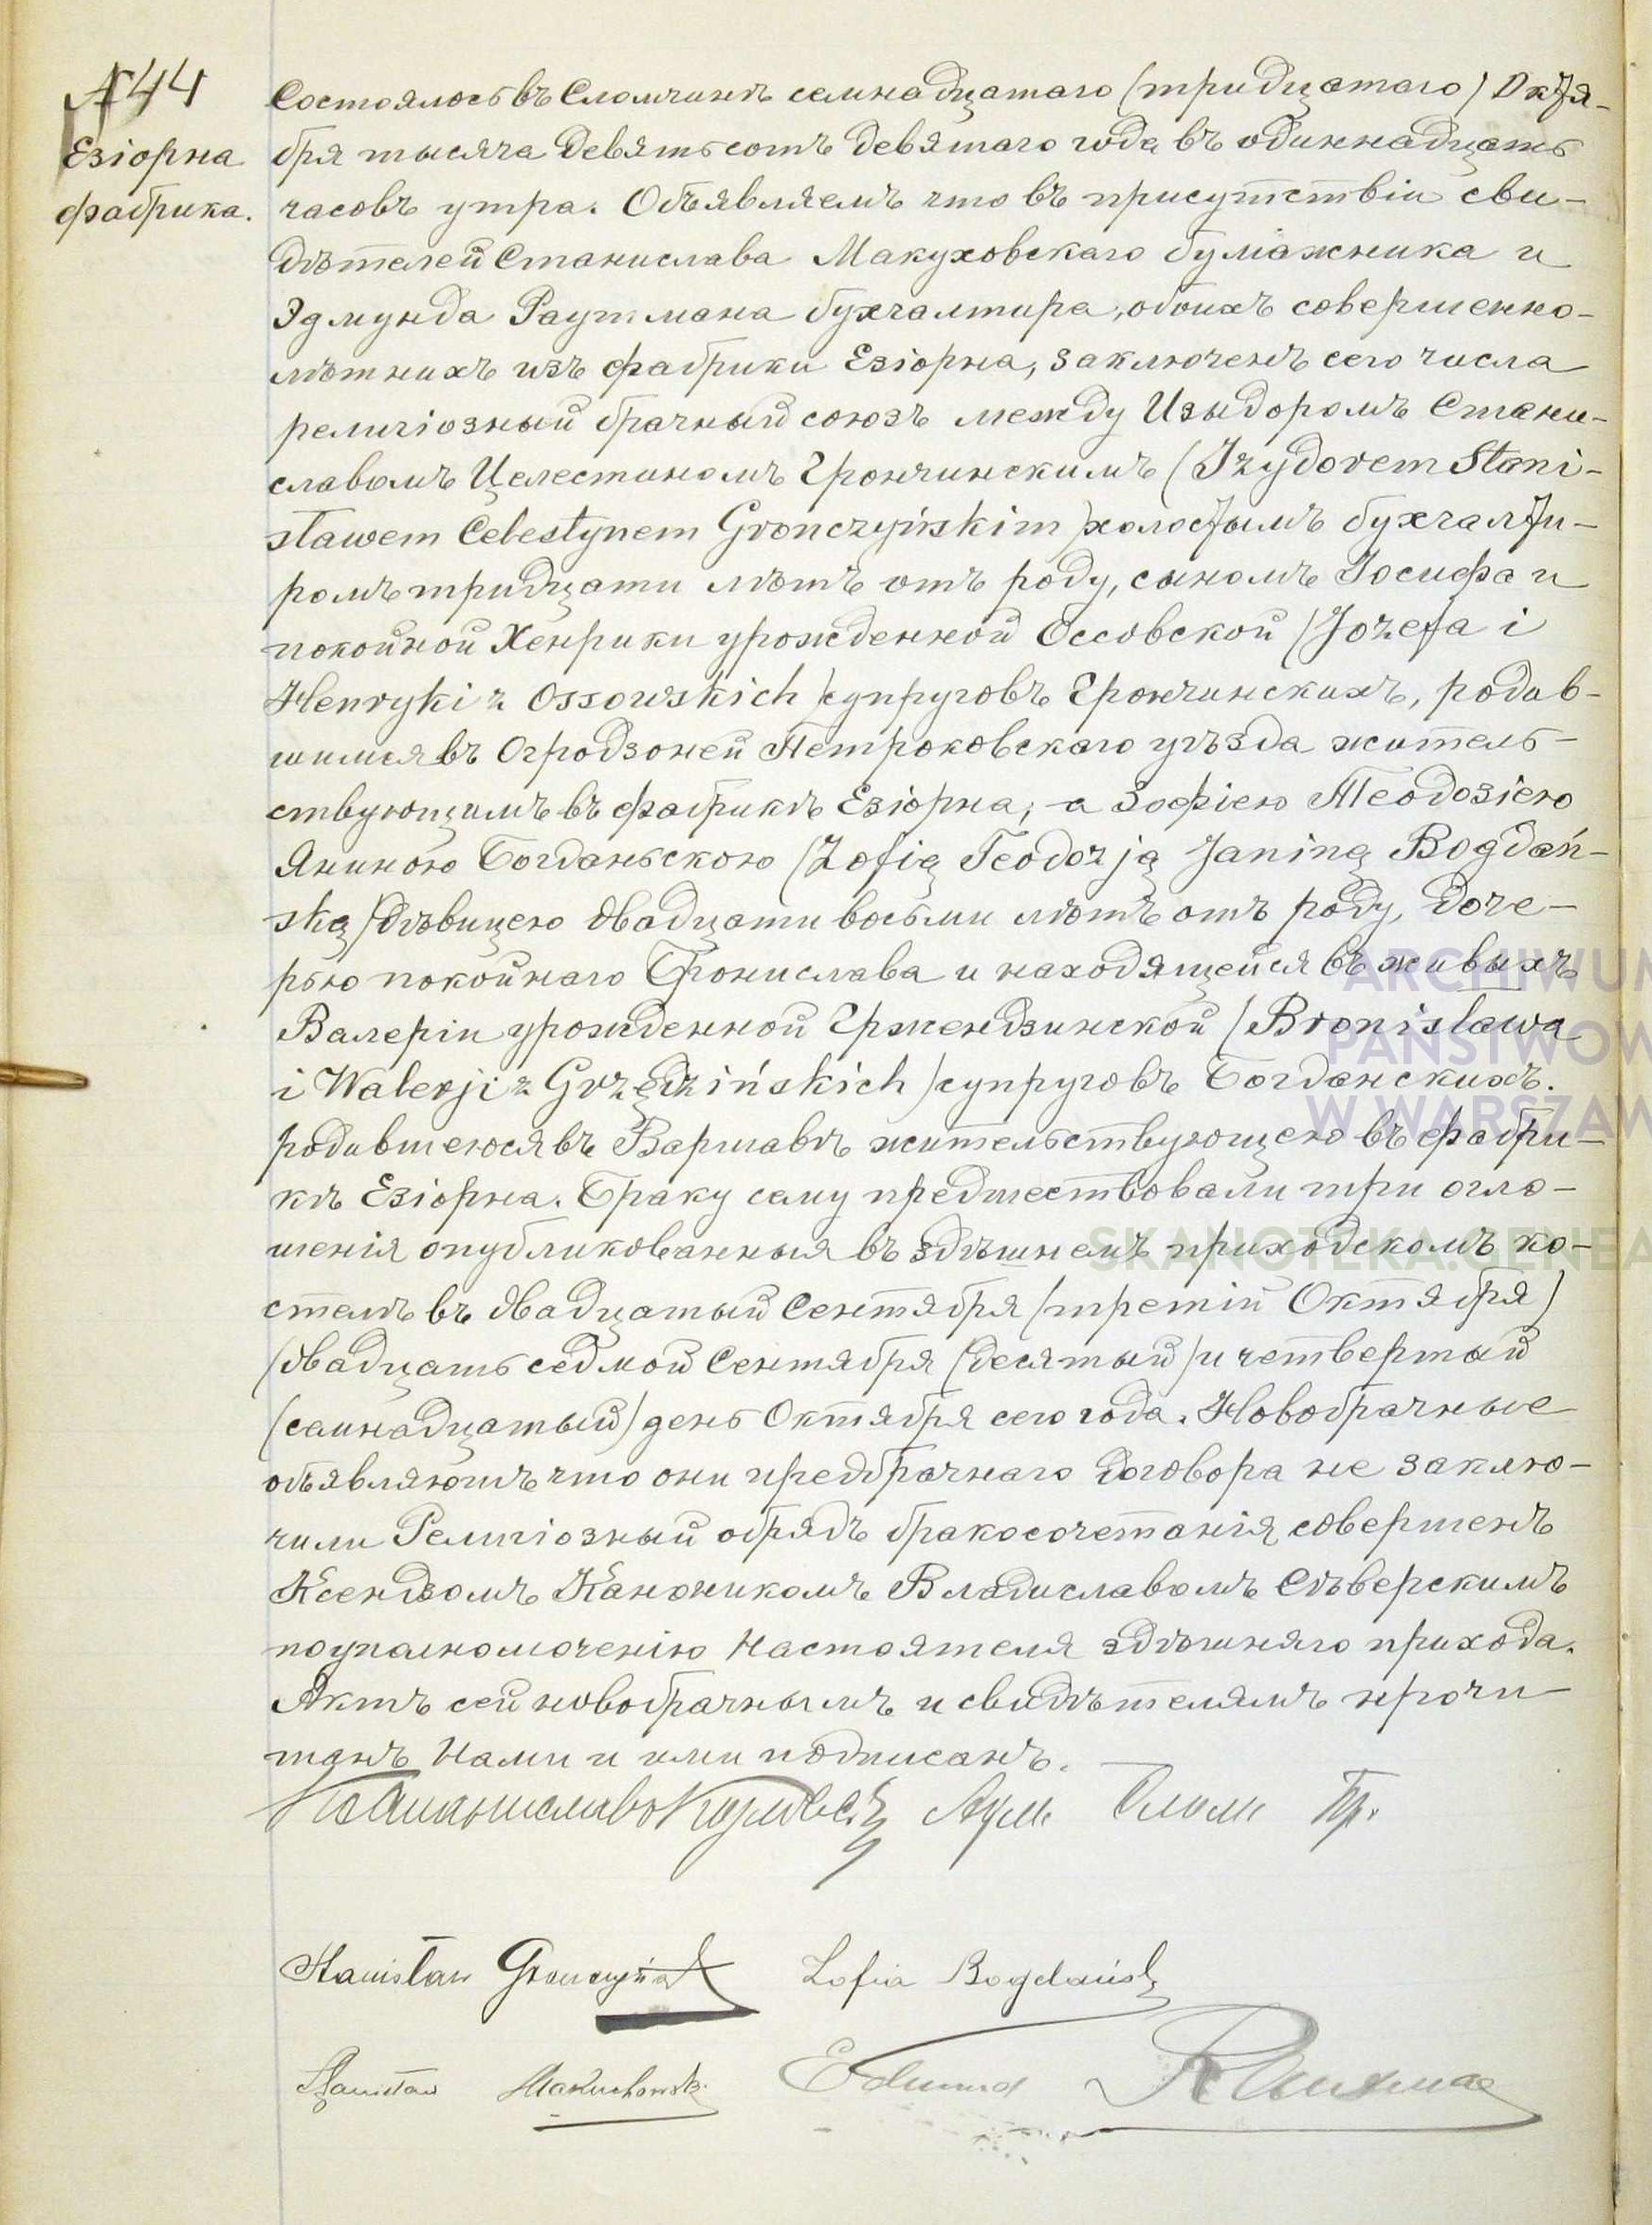 №44
Езіорна
фабрика.
Состоялось въ Сломчинѣ семнадцатаго (тридцатаго) Октя-
бря тысяча девятьсотъ девятаго года въ одиннадцать
часовъ утра. Объявляемъ что въ присутствіи сви-
дѣтелей Станислава Макуховскаго бумажника и
Эдмунда Раутмана бухгалтира, обоихъ совершенно-
лѣтнихъ изъ фабрики Езіорна, заключенъ сего числа
религіозный брачный союзъ между Изыдоромъ Стани-
славомъ Целестиномъ Грончинскимъ (Izydorem Stani-
sławem Celestynem Gronczyńskim) холостымъ бухгалти-
ромъ тридцати лѣтъ отъ роду, сыномъ Іосифа и
покойной Хенрики урожденной Оссовской (Józefa i
Henryki z Ossowskich) супруговъ Грончинскихъ, родив-
шимся въ Огродзоней Петроковскаго уѣзда житель-
ствующимъ въ фабрикѣ Езіорна, а Зофіею Теодозіею
Яниною Богданьскою (Zofią Teodozją Janiną Bogdań-
ską) дѣвицею двадцати восьми лѣтъ отъ роду, доче-
рью покойнаго Бронислава и находящейся въ живыхъ
Валеріи урожденной Гржендзинской (Bronisława
i Walerji z Grzędzińskich) супруговъ Богданскихъ.
родившеюся въ Варшавѣ жительствующею въ фабри-
кѣ Езіорна. Браку сему предшествовали три огло-
шенія опубликованныя въ здѣшнемъ приходскомъ ко-
стелѣ въ двадцатый Сентября (третій Октября)
(двадцать седмой Сентября (десятый) и четвертый
(семнадцатый) день Октября сего года. Новобрачные
объявляютъ что они предбрачнаго договора не заклю-
чили Религіозный обрядъ бракосочетанія совершенъ
Ксендзомъ Каноникомъ Владиславомъ Сѣверскимъ
по уполномоченію Настоятеля здѣшняго прихода.
Актъ сей новобрачнымъ и свидѣтелямъ прочи-
танъ Нами и ими подписанъ.
Stanisław Gronczyński Zofia Bogdańska
Stanisław Makuchowski Edmund Rautman
ARCHIWUM
PAŃSTWOW
W WARSZAW
SKANOTEKA.GENEA